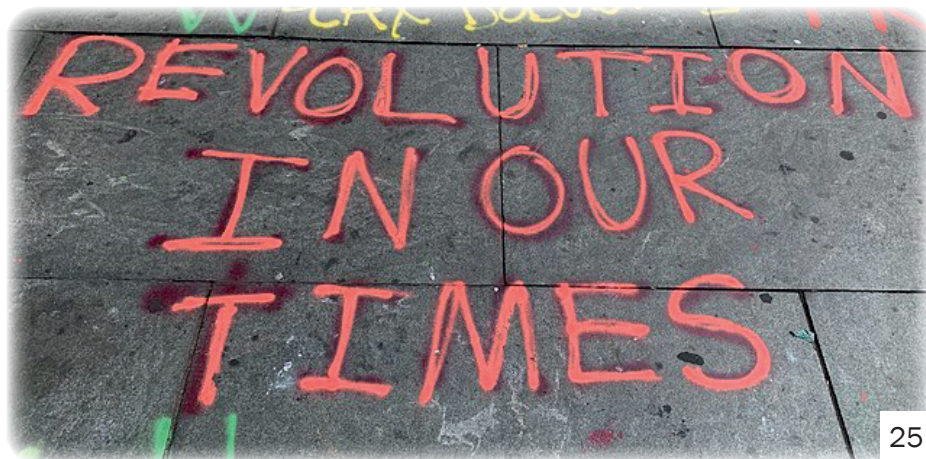 REVOLUTION
IN OUR
TIMES
25